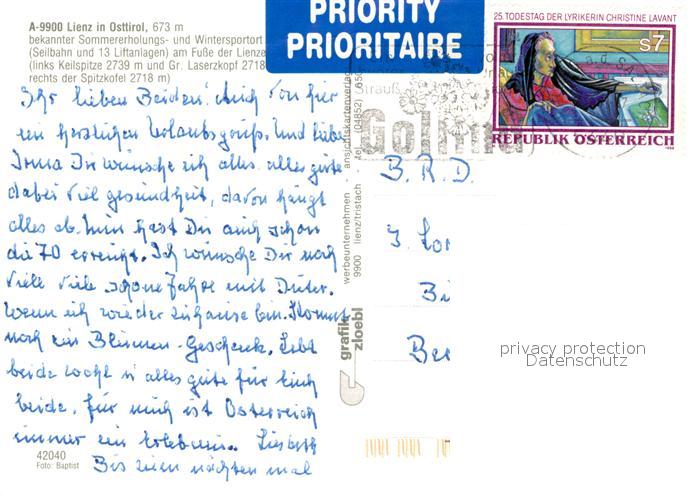 A-9900 Lienz in Osttirol, 673 m
bekannter Sommererholungs- und Wintersportort
(Seilbahn und 13 Liftanlagen) am Fuße der Lienze
(links Keilspitze 2739 m und Gr. Laserzkopf 2718
rechts der Spitzkofel 2718 m)
PRIORITY
PRIORITAIRE
25. TODESTAG DER LYRIKERIN CHRISTINE LAVANT
S7
REPUBLIK ÖSTERREICH
Ihr lieben Beiden! Auch von hier
ein herzlichen Urlaubsgruß. Und liebe
Irma Dir wünsche ich alles alles gute
dabei viel gesundheit, davon hängt
alles ab. Nun hast Du auch schon
die 70 erreicht. Ich wünsche Dir noch
viele viele schöne Jahre mit Dieter.
Wenn ich wieder zuhause bin. Kommt
noch ein Blumen-Geschenk. Lebt
beide wohl u alles gute für Euch
beide. für mich ist Österreich
immer ein Erlebnis.. Liesbeth
Bis zum nächsten mal
42040
Foto: Baptist
werbeunternehmen ansichtskartenverlag
9900 lienz/tristach - tel. (04852) 650
grafik
zloebl
B.R.D.
Bi
Ber
privacy protection
Datenschutz